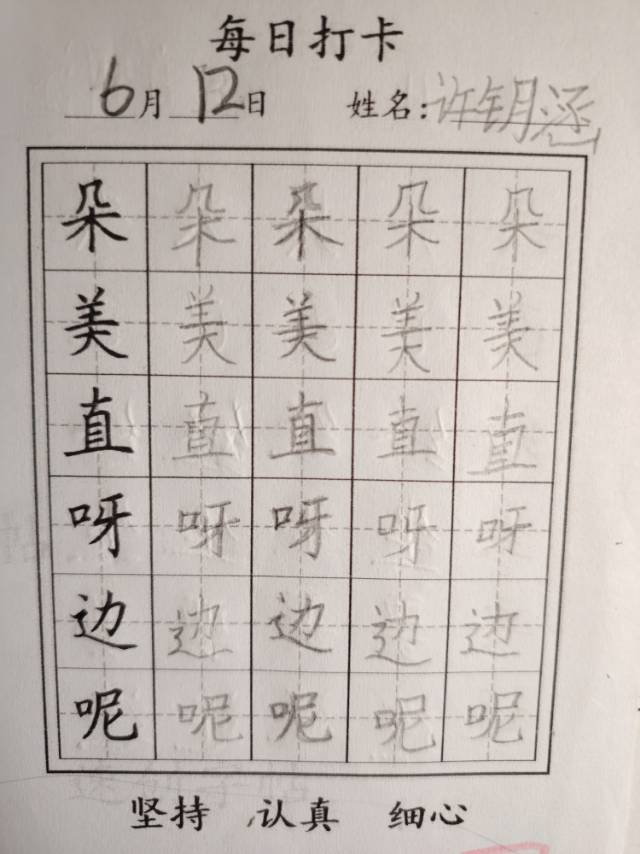 每日打卡
6月12日 姓名:许钥涵
朵朵朵朵朵
美美美美美
直直直直直
呀呀呀呀呀
边边边边边
呢呢呢呢呢
坚持 认真 细心